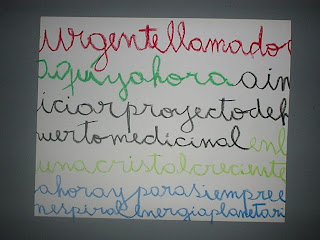 urgentellamadoo
aquiyahoraain
iciarproyectodeh
uertomedicinalenl
unacristalcreciente
ahorayparasiempree
nespiral energiaplanetari